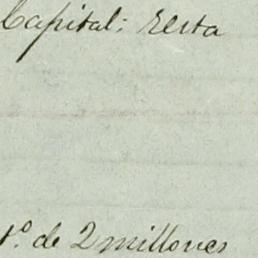 Capital: resta
1º. de 2 millones